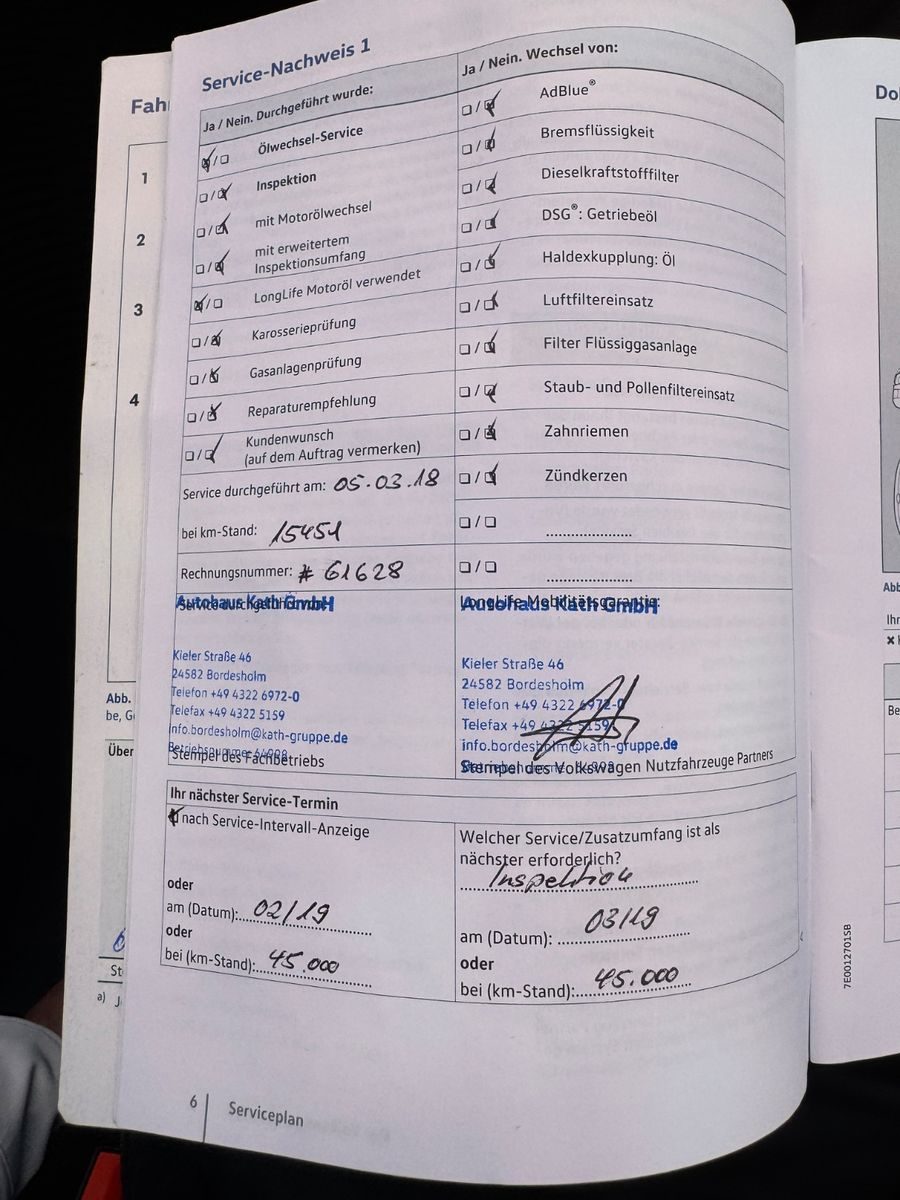 Service-Nachweis 1
Ja / Nein. Durchgeführt wurde:
Ölwechsel-Service
Inspektion
mit Motorölwechsel
mit erweitertem
Inspektionsumfang
LongLife Motoröl verwendet
Karosserieprüfung
Gasanlagenprüfung
Reparaturempfehlung
Kundenwunsch
(auf dem Auftrag vermerken)
Service durchgeführt am: 05.03.18
bei km-Stand: 15451
Rechnungsnummer: # 61628
Ja / Nein. Wechsel von:
AdBlue®
Bremsflüssigkeit
Dieselkraftstofffilter
DSG®: Getriebeöl
Haldexkupplung: Öl
Luftfiltereinsatz
Filter Flüssiggasanlage
Staub- und Pollenfiltereinsatz
Zahnriemen
Zündkerzen
Autohaus Kath GmbH
Kieler Straße 46
24582 Bordesholm
Telefon +49 4322 6972-0
Telefax +49 4322 5159
info.bordesholm@kath-gruppe.de
Stempel des Fachbetriebs
LongLife Mobilitätsgarantie:
Autohaus Kath GmbH
Kieler Straße 46
24582 Bordesholm
Telefon +49 4322 6972-0
Telefax +49 4322 5159
info.bordesholm@kath-gruppe.de
Stempel des Volkswagen Nutzfahrzeuge Partners
Ihr nächster Service-Termin
nach Service-Intervall-Anzeige
oder
am (Datum): 02/19
oder
bei (km-Stand): 45.000
Welcher Service/Zusatzumfang ist als
nächster erforderlich?
Inspektion
am (Datum): 03/19
oder
bei (km-Stand): 45.000
6 Serviceplan
Fah
1
2
3
4
Abb.
be, G
Über
St
a) J
Do
Abb
Ihr
Be
7E0012701SB